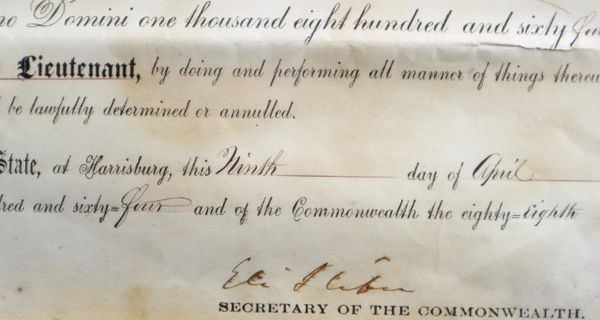 no Domini one thousand eight hundred and sixty four
Lieutenant, by doing and performing all manner of things thereu
l be lawfully determined or annulled.
State, at Harrisburg, this Ninth day of April
dred and sixty=four and of the Commonwealth the eighty=Eighth
Eli Slifer
SECRETARY OF THE COMMONWEALTH.